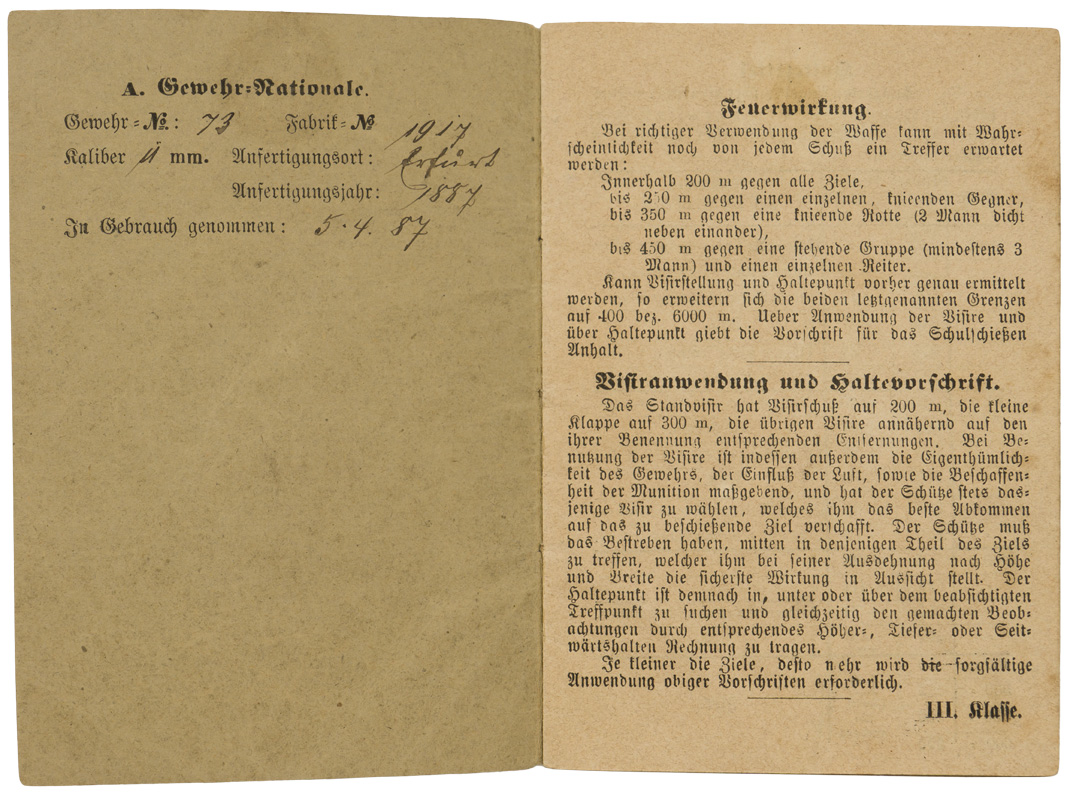 A. Gewehr-Nationale.
Gewehr-No.: 73 Fabrik-No 1917
Kaliber 11 mm. Anfertigungsort: Erfurt
Anfertigungsjahr: 1887
In Gebrauch genommen: 5. 4. 87
Feuerwirkung.
Bei richtiger Verwendung der Waffe kann mit Wahr-
scheinlichkeit noch von jedem Schuß ein Treffer erwartet
werden:
Innerhalb 200 m gegen alle Ziele,
bis 250 m gegen einen einzelnen, knieenden Gegner,
bis 350 m gegen eine knieende Rotte (2 Mann dicht
neben einander),
bis 450 m gegen eine stehende Gruppe (mindestens 3
Mann) und einen einzelnen Reiter.
Kann Visirstellung und Haltepunkt vorher genau ermittelt
werden, so erweitern sich die beiden letztgenannten Grenzen
auf 400 bez. 6000 m. Ueber Anwendung der Visire und
über Haltepunkt giebt die Vorschrift für das Schulschießen
Anhalt.
Visiranwendung und Haltevorschrift.
Das Standvisir hat Visirschuß auf 200 m, die kleine
Klappe auf 300 m, die übrigen Visire annähernd auf den
ihrer Benennung entsprechenden Entfernungen. Bei Be-
nutzung der Visire ist indessen außerdem die Eigenthümlich-
keit des Gewehrs, der Einfluß der Luft, sowie die Beschaffen-
heit der Munition maßgebend, und hat der Schütze stets das-
jenige Visir zu wählen, welches ihm das beste Abkommen
auf das zu beschießende Ziel verschafft. Der Schütze muß
das Bestreben haben, mitten in denjenigen Theil des Ziels
zu treffen, welcher ihm bei seiner Ausdehnung nach Höhe
und Breite die sicherste Wirkung in Aussicht stellt. Der
Haltepunkt ist demnach in, unter oder über dem beabsichtigten
Treffpunkt zu suchen und gleichzeitig den gemachten Beob-
achtungen durch entsprechendes Höher-, Tiefer- oder Seit-
wärtshalten Rechnung zu tragen.
Je kleiner die Ziele, desto mehr wird die sorgfältige
Anwendung obiger Vorschriften erforderlich.
III. Klasse.